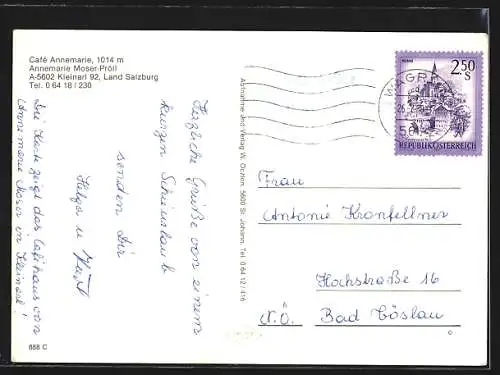 Café Annemarie, 1014 m
Annemarie Moser-Pröll
A-5602 Kleinarl 92, Land Salzburg
Tel. 0 64 18 / 230
Herzliche Grüße von einem
kurzen Schiurlaub
senden Dir
Helga u. Kurt
Die Karte zeigt das Caféhaus von
Annemarie Moser in Kleinarl!
888 C
Aufnahme und Verlag W. Orchim. 5600 St. Johann. Tel. 0 64 12 / 416
WAGRAIN
2,50
S
REPUBLIK ÖSTERREICH
Frau
Antonie Kronfellner
Hochstraße 16
N.Ö. Bad Vöslau